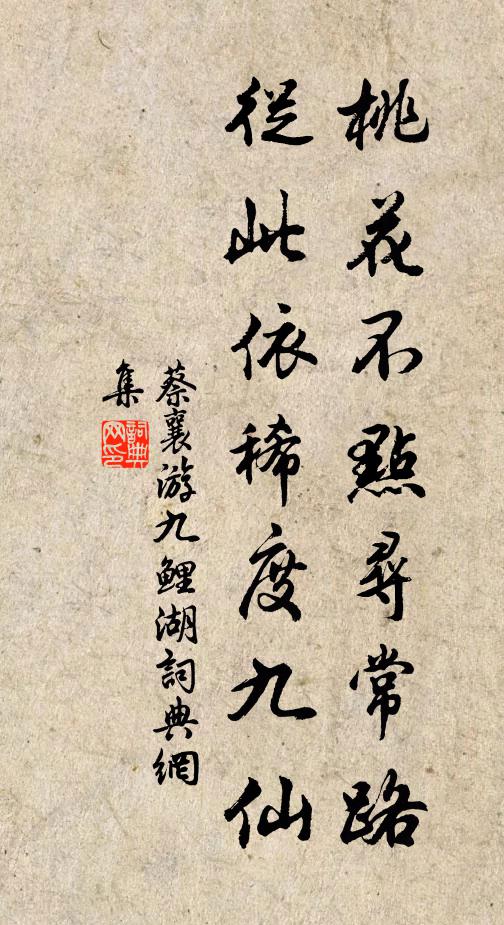 桃花不點尋常路
從此依稀度九仙
蔡襄游九鯉湖詞典網
集
詞典
网印